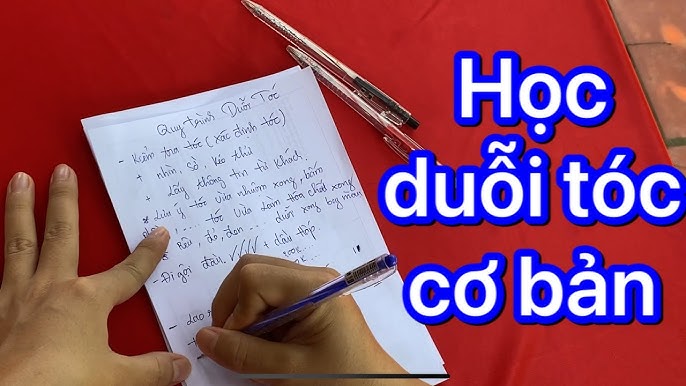 Quy trình Duỗi Tóc
- Kiểm tra tóc (xác định tóc)
+ nhìn, sờ, kéo thử
+ Lấy thông tin từ khách,
* Lưu ý tóc vừa nhuộm xong, bấm
tóc vừa làm hóa chất xong
đỏ, đen ... duỗi xong bay màu
- Đi gội đầu
Học
duỗi tóc
cơ bản